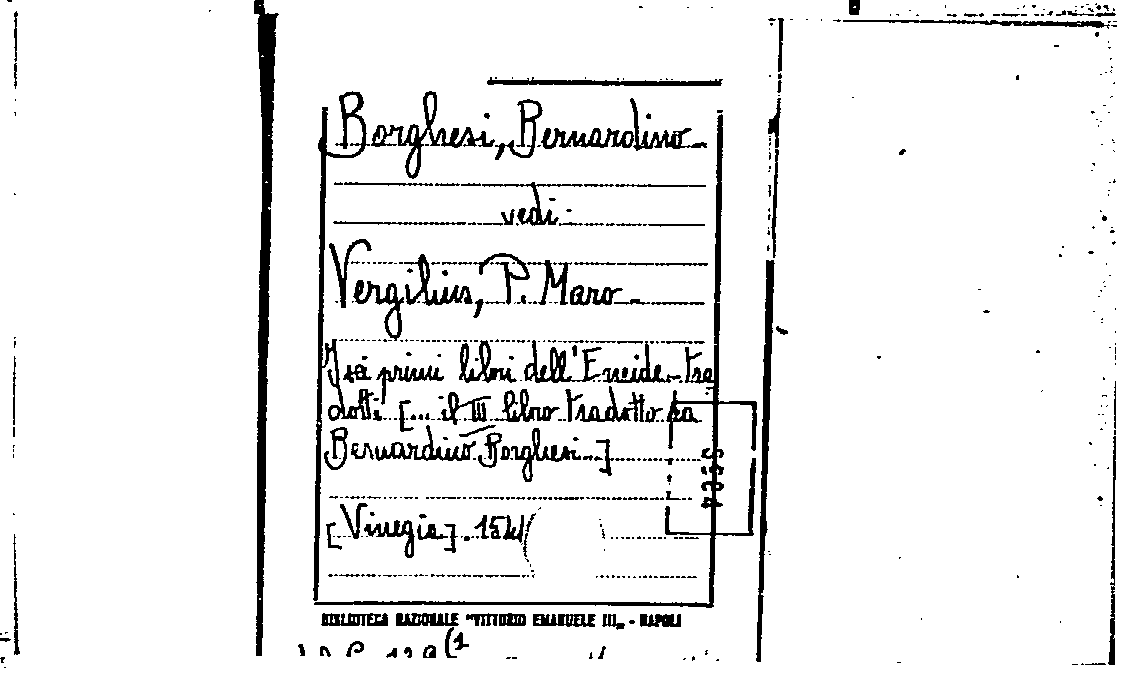 Borghesi, Bernardino -
vedi:
Vergilius, P. Maro -
I sei primi libri dell'Eneide - tra
dotti [... il III libro tradotto da
Bernardino Borghesi...]
[Vinegia]. 154
BIBLIOTECA NAZIONALE "VITTORIO EMANUELE III„ - NAPOLI